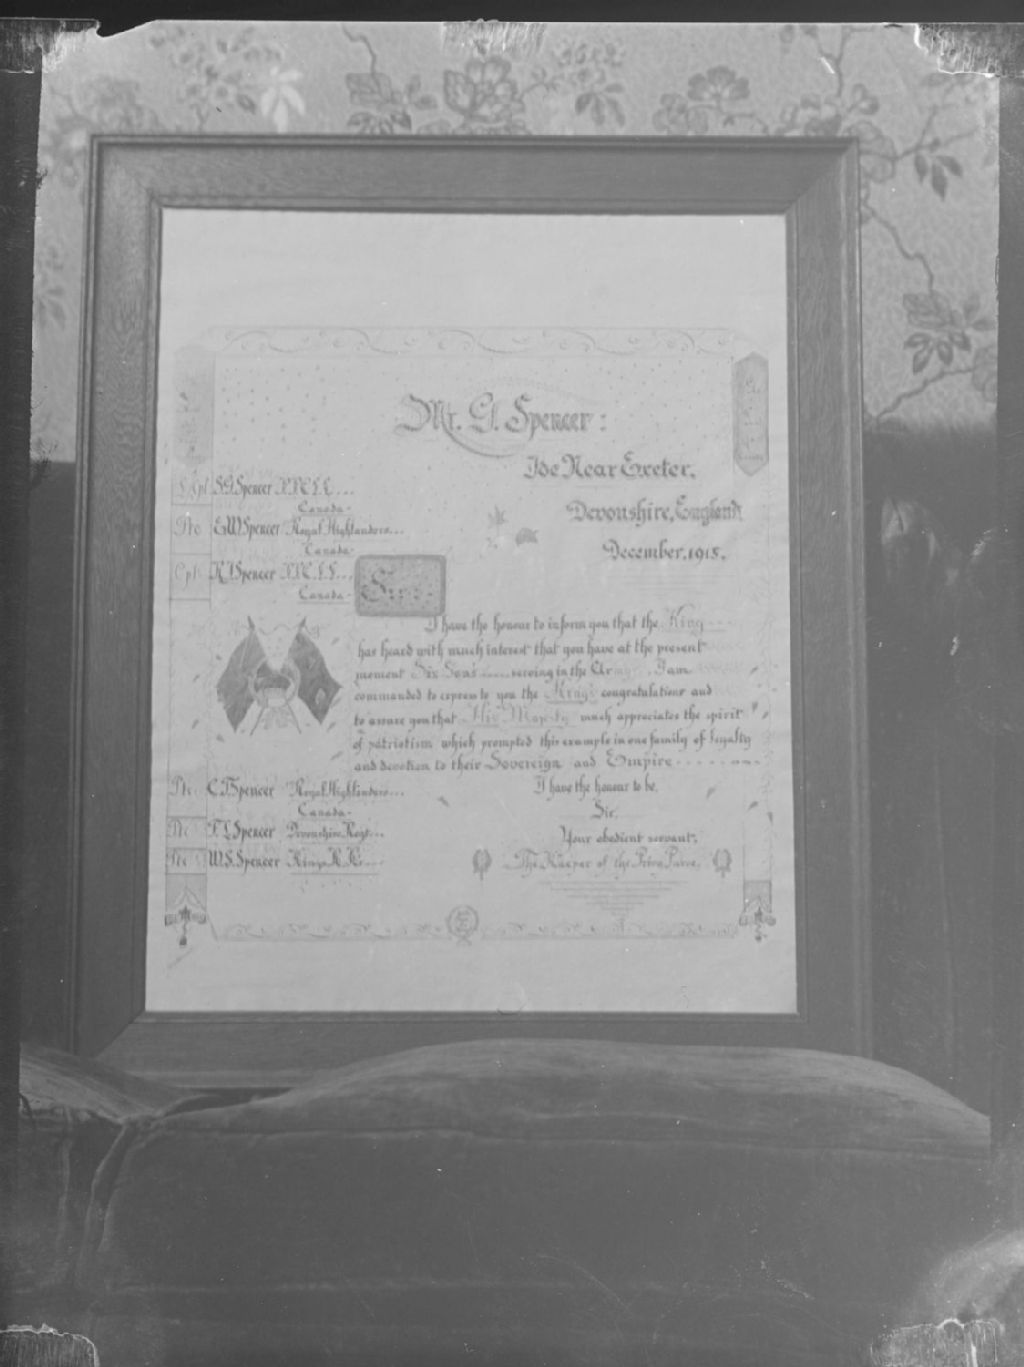 Mr. G. Spencer:
Ide Near Exeter.
Devonshire, England
December. 1915.
S.G. Spencer
Canada.
Pte E.W. Spencer Royal Highlanders...
Canada.
Cpl. Spencer
Canada.
Sir.
I have the honour to inform you that the King
has heard with much interest that you have at the present
moment Six Sons serving in the Army. I am
commanded to express to you the King's congratulations and
to assure you that His Majesty much appreciates the spirit
of patriotism which prompted this example in one family of loyalty
and devotion to their Sovereign and Empire
I have the honour to be,
Sir,
Your obedient servant,
The Keeper of the Privy Purse.
Pte. C.T. Spencer Royal Highlanders...
Canada.
Pte. F.L. Spencer Devonshire Regt...
Pte. W.S. Spencer King's R. R's...